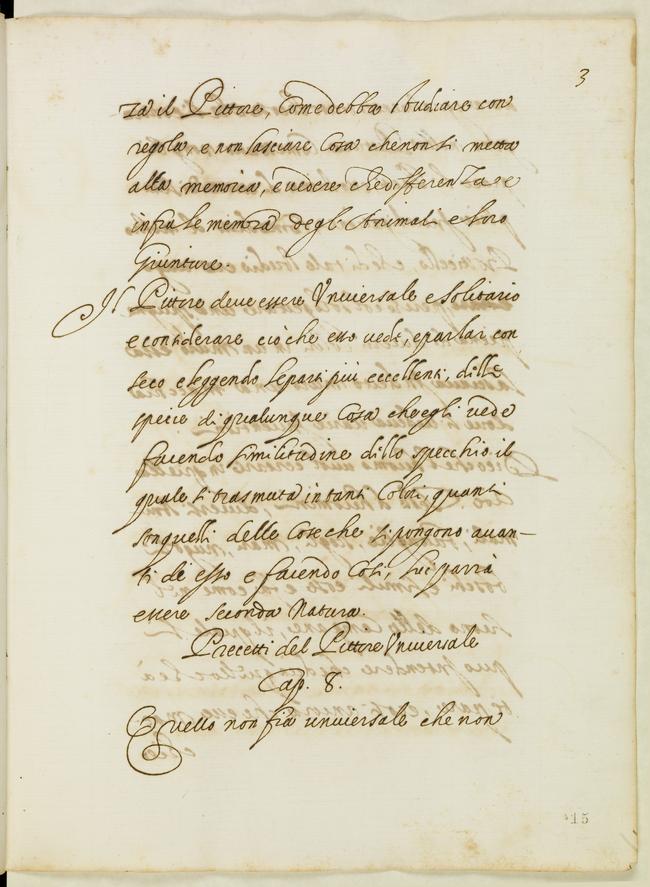 3
za il Pittore, Come debba studiare con
regola, e non lasciare Cosa che non si metta
alla memoria, e vedere che differenza e
infra le membra degli Animali e loro
Giunture.
Il Pittore deve essere Universale e solitario
e considerare ciò che esso vede, e parlar con
seco eleggendo le parti più eccellenti, delle
specie di qualunque Cosa che egli vede
facendo similitudine dello specchio il
quale si trasmuta in tanti Colori, quanti
son quelli delle Cose che si pongono auan-
ti di esso e facendo Così, lui parrà
essere seconda Natura.
Precetti del Pittore Universale
Cap. 8.
Quello non fia universale che non
15